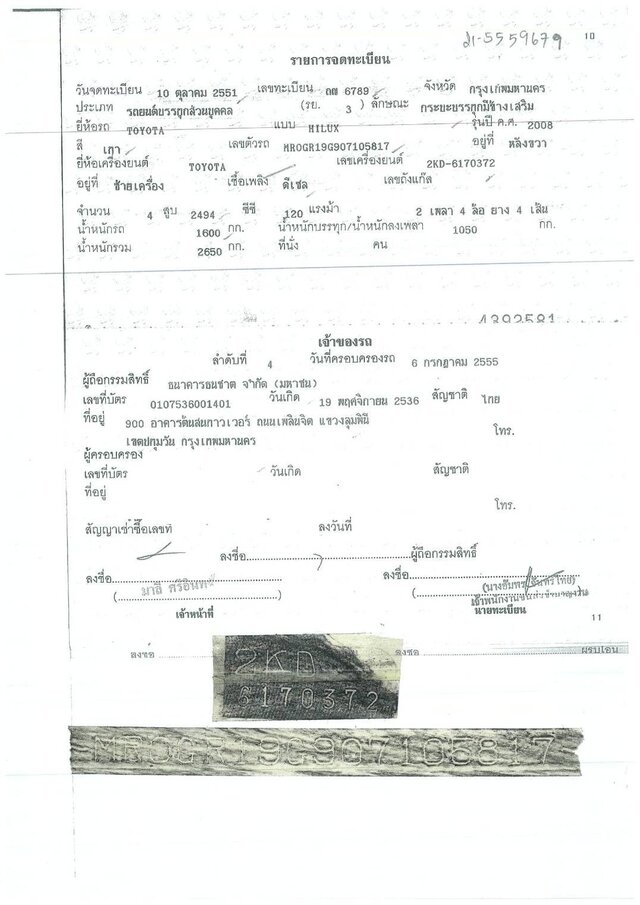 21-5559679 10
รายการจดทะเบียน
วันจดทะเบียน 10 ตุลาคม 2551 เลขทะเบียน ถฬ 6789 จังหวัด กรุงเทพมหานคร
ประเภท รถยนต์บรรทุกส่วนบุคคล (รย. 3) ลักษณะ กระบะบรรทุกมีข้างเสริม
ยี่ห้อรถ TOYOTA แบบ HILUX รุ่นปี ค.ศ. 2008
สี เทา เลขตัวรถ MROGR19G907105817 อยู่ที่ หลังขวา
ยี่ห้อเครื่องยนต์ TOYOTA เลขเครื่องยนต์ 2KD-6170372
อยู่ที่ ซ้ายเครื่อง เชื้อเพลิง ดีเซล เลขถังแก๊ส
จำนวน 4 สูบ 2494 ซีซี 120 แรงม้า 2 เพลา 4 ล้อ ยาง 4 เส้น
น้ำหนักรถ 1600 กก. น้ำหนักบรรทุก/น้ำหนักลงเพลา 1050 กก.
น้ำหนักรวม 2650 กก. ที่นั่ง คน
4392581
เจ้าของรถ
ลำดับที่ 4 วันที่ครอบครองรถ 6 กรกฎาคม 2555
ผู้ถือกรรมสิทธิ์ ธนาคารธนชาต จำกัด (มหาชน)
เลขที่บัตร 0107536001401 วันเกิด 19 พฤศจิกายน 2536 สัญชาติ ไทย
ที่อยู่ 900 อาคารต้นสนทาวเวอร์ ถนนเพลินจิต แขวงลุมพินี
เขตปทุมวัน กรุงเทพมหานคร โทร.
ผู้ครอบครอง
เลขที่บัตร วันเกิด สัญชาติ
ที่อยู่
โทร.
สัญญาเช่าซื้อเลขที่ ลงวันที่
ลงชื่อ ผู้ถือกรรมสิทธิ์
ลงชื่อ มาลี ลงชื่อ
เจ้าหน้าที่ นายทะเบียน
11
ลงชื่อ ลงชื่อ ผู้รับโอน
2KD
6170372
MROGR19G907105817